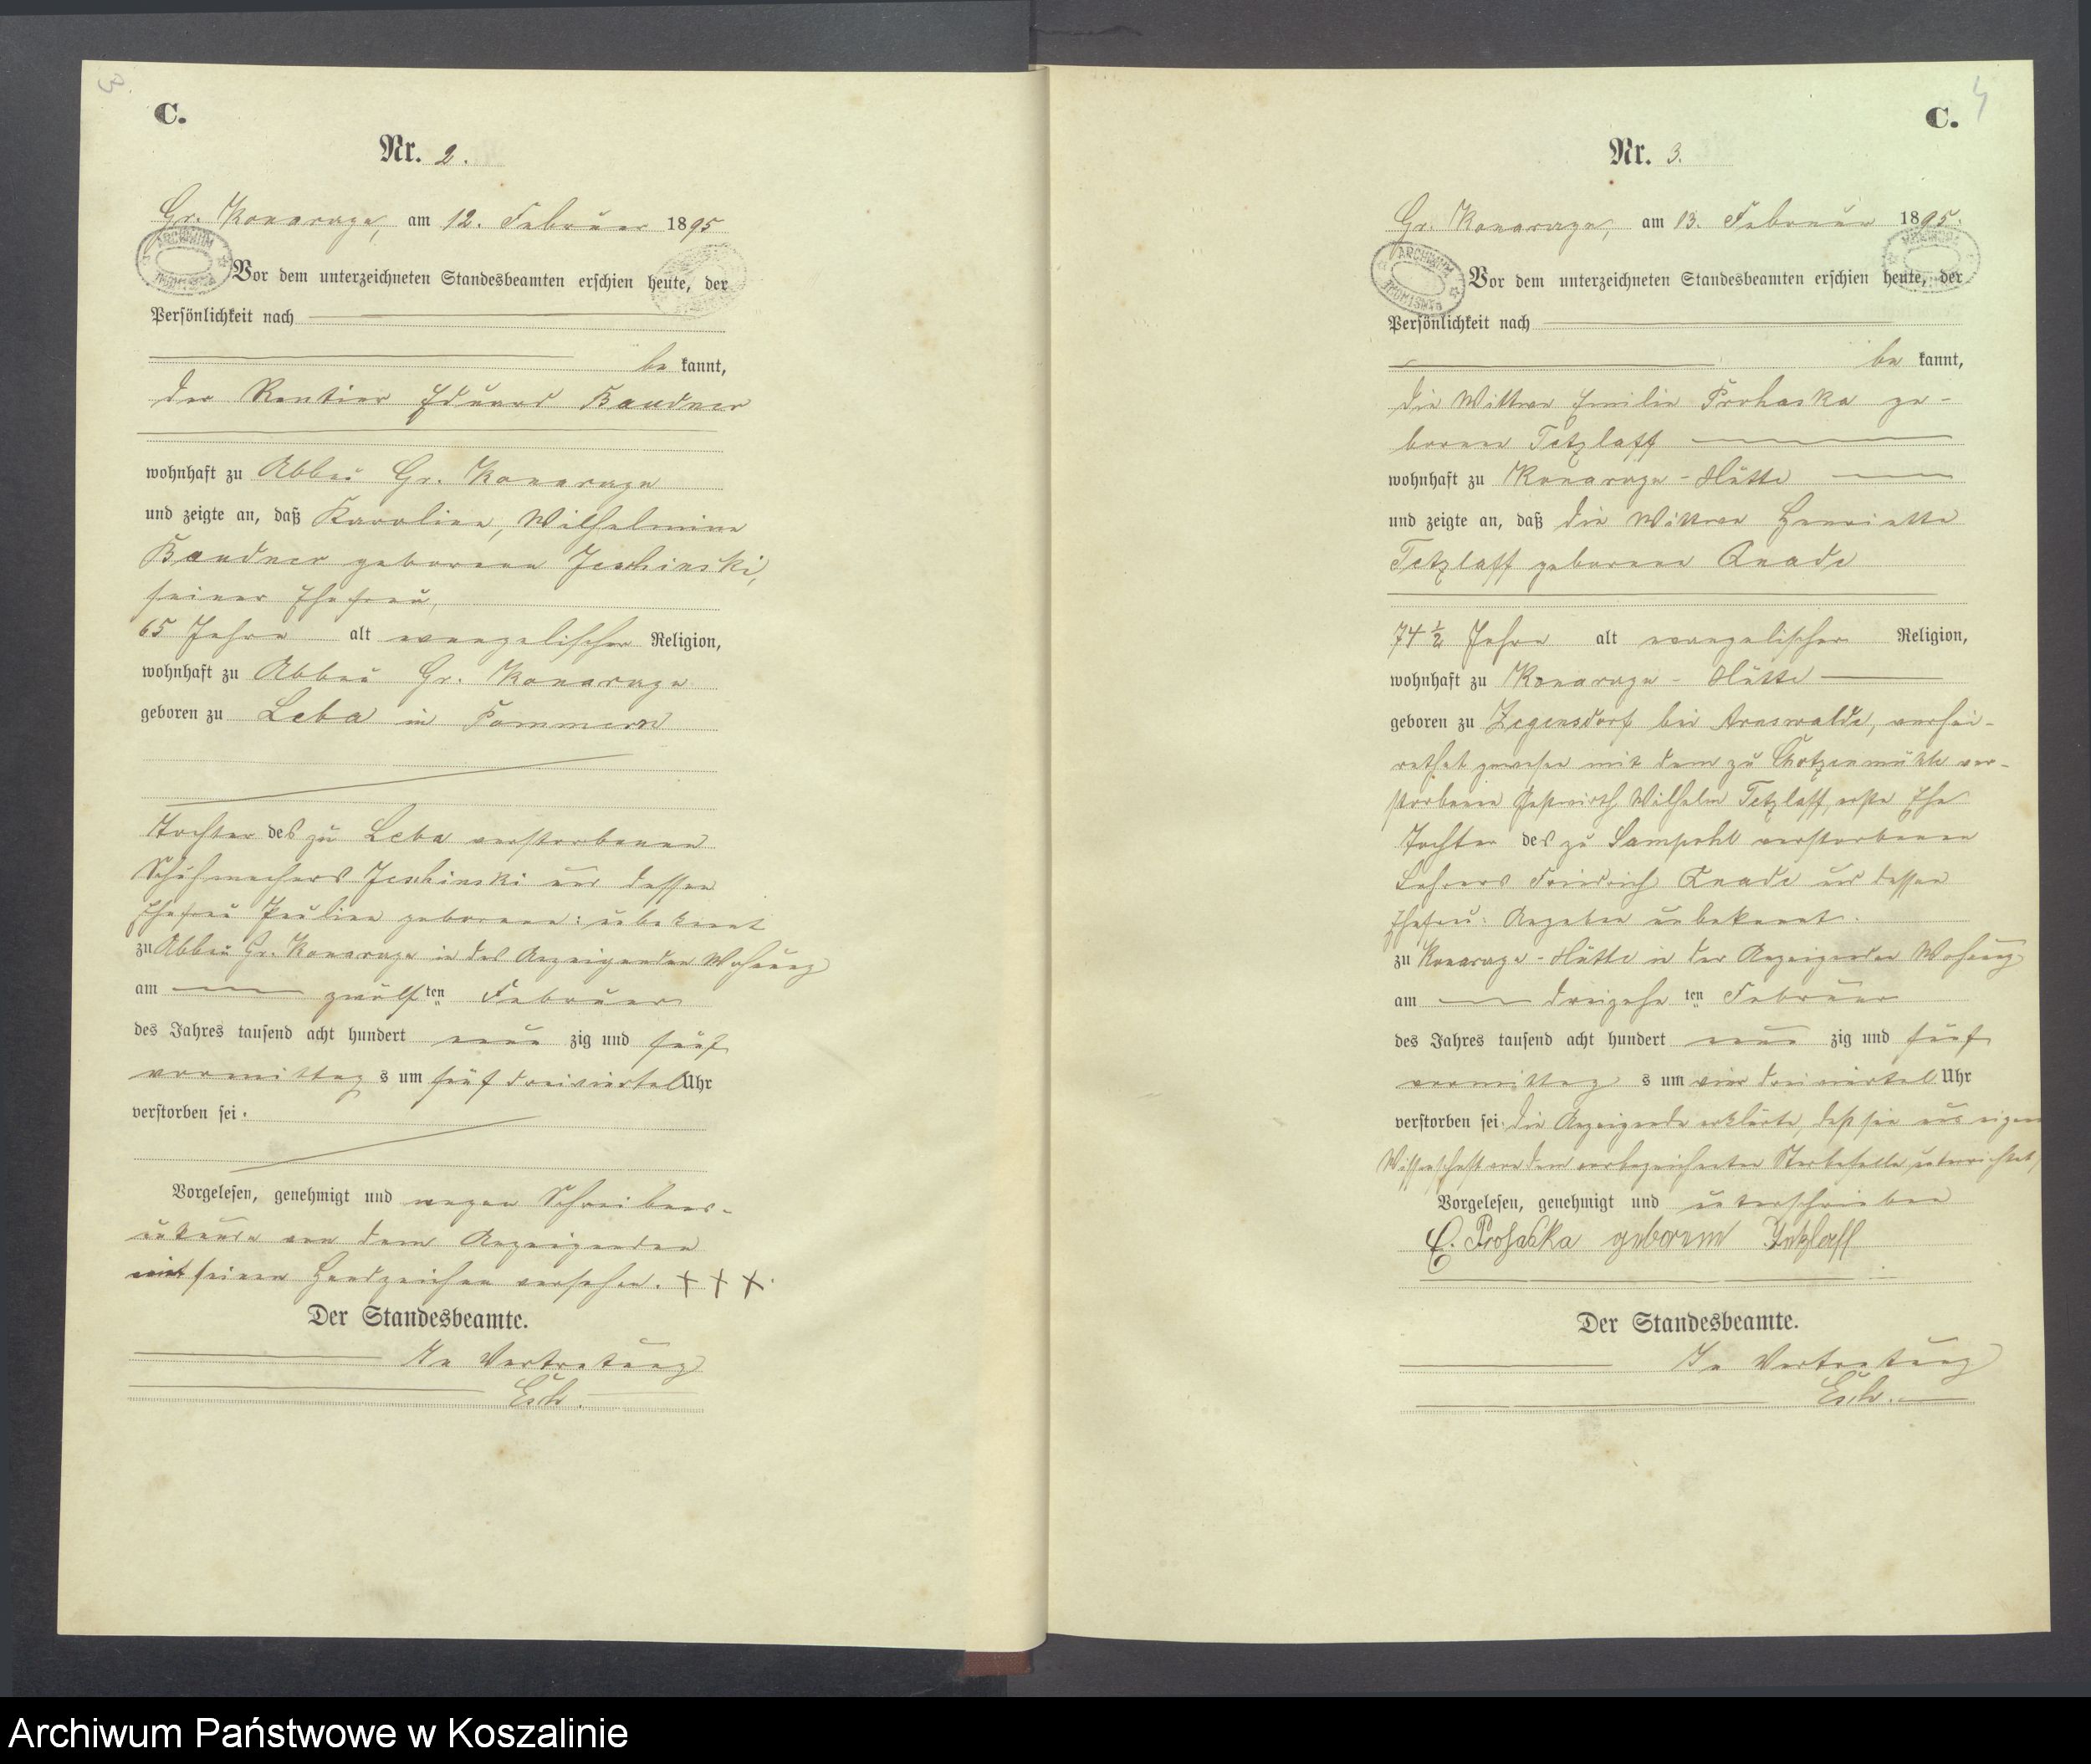 3.
C.
Nr. 2.
Gr. Konarzyn, am 12. Februar 1895
Vor dem unterzeichneten Standesbeamten erschien heute, der
Persönlichkeit nach
be kannt,
der Rentier Eduard Baudner
wohnhaft zu Abbau Gr. Konarzyn
und zeigte an, daß Karoline, Wilhelmine
Baudner geborene Jeschinski,
seiner Ehefrau,
65 Jahre alt evangelischer Religion,
wohnhaft zu Abbau Gr. Konarzyn
geboren zu Leba in Pommern
Tochter des zu Leba verstorbenen
Schuhmachers Jeschinski und dessen
Ehefrau Pauline geborene: unbekannt
zu Abbau Gr. Konarzyn in des Anzeigenden Wohnung
am zwölf ten Februar
des Jahres tausend acht hundert neun zig und fünf
vormittag s um fünf dreiviertel Uhr
verstorben sei.
Vorgelesen, genehmigt und wegen Schreibens-
unkunde von dem Anzeigenden
mit seinem Handzeichen versehen. + + +.
Der Standesbeamte.
In Vertretung
4
C.
Nr. 3.
Gr. Konarzyn, am 13. Februar 1895.
Vor dem unterzeichneten Standesbeamten erschien heute, der
Persönlichkeit nach
be kannt,
die Wittwe Emilie Prohaska ge-
borene Tetzlaff
wohnhaft zu Konarzyn-Hütte
und zeigte an, daß die Wittwe Henriette
Tetzlaff geborene Knade
74 1/2 Jahre alt evangelischer Religion,
wohnhaft zu Konarzyn-Hütte
geboren zu Zegensdorf bei Arnswalde, verhei-
rathet gewesen mit dem zu Chotzenmühle ver-
storbenen Gastwirth Wilhelm Tetzlaff, erste Ehe
Tochter des zu Sampohl verstorbenen
Lehrers Friedrich Knade und dessen
Ehefrau: Angaben unbekannt.
zu Konarzyn-Hütte in der Anzeigenden Wohnung
am dreizehn ten Februar
des Jahres tausend acht hundert neun zig und fünf
vormittag s um vier dreiviertel Uhr
verstorben sei. Die Anzeigende erklärte, daß sie aus eigener
Wissenschaft von dem vorbezeichneten Sterbefalle unterrichtet,
Vorgelesen, genehmigt und unterschrieben
E. Prohaska geborene Tetzlaff
Der Standesbeamte.
In Vertretung
Archiwum Państwowe w Koszalinie